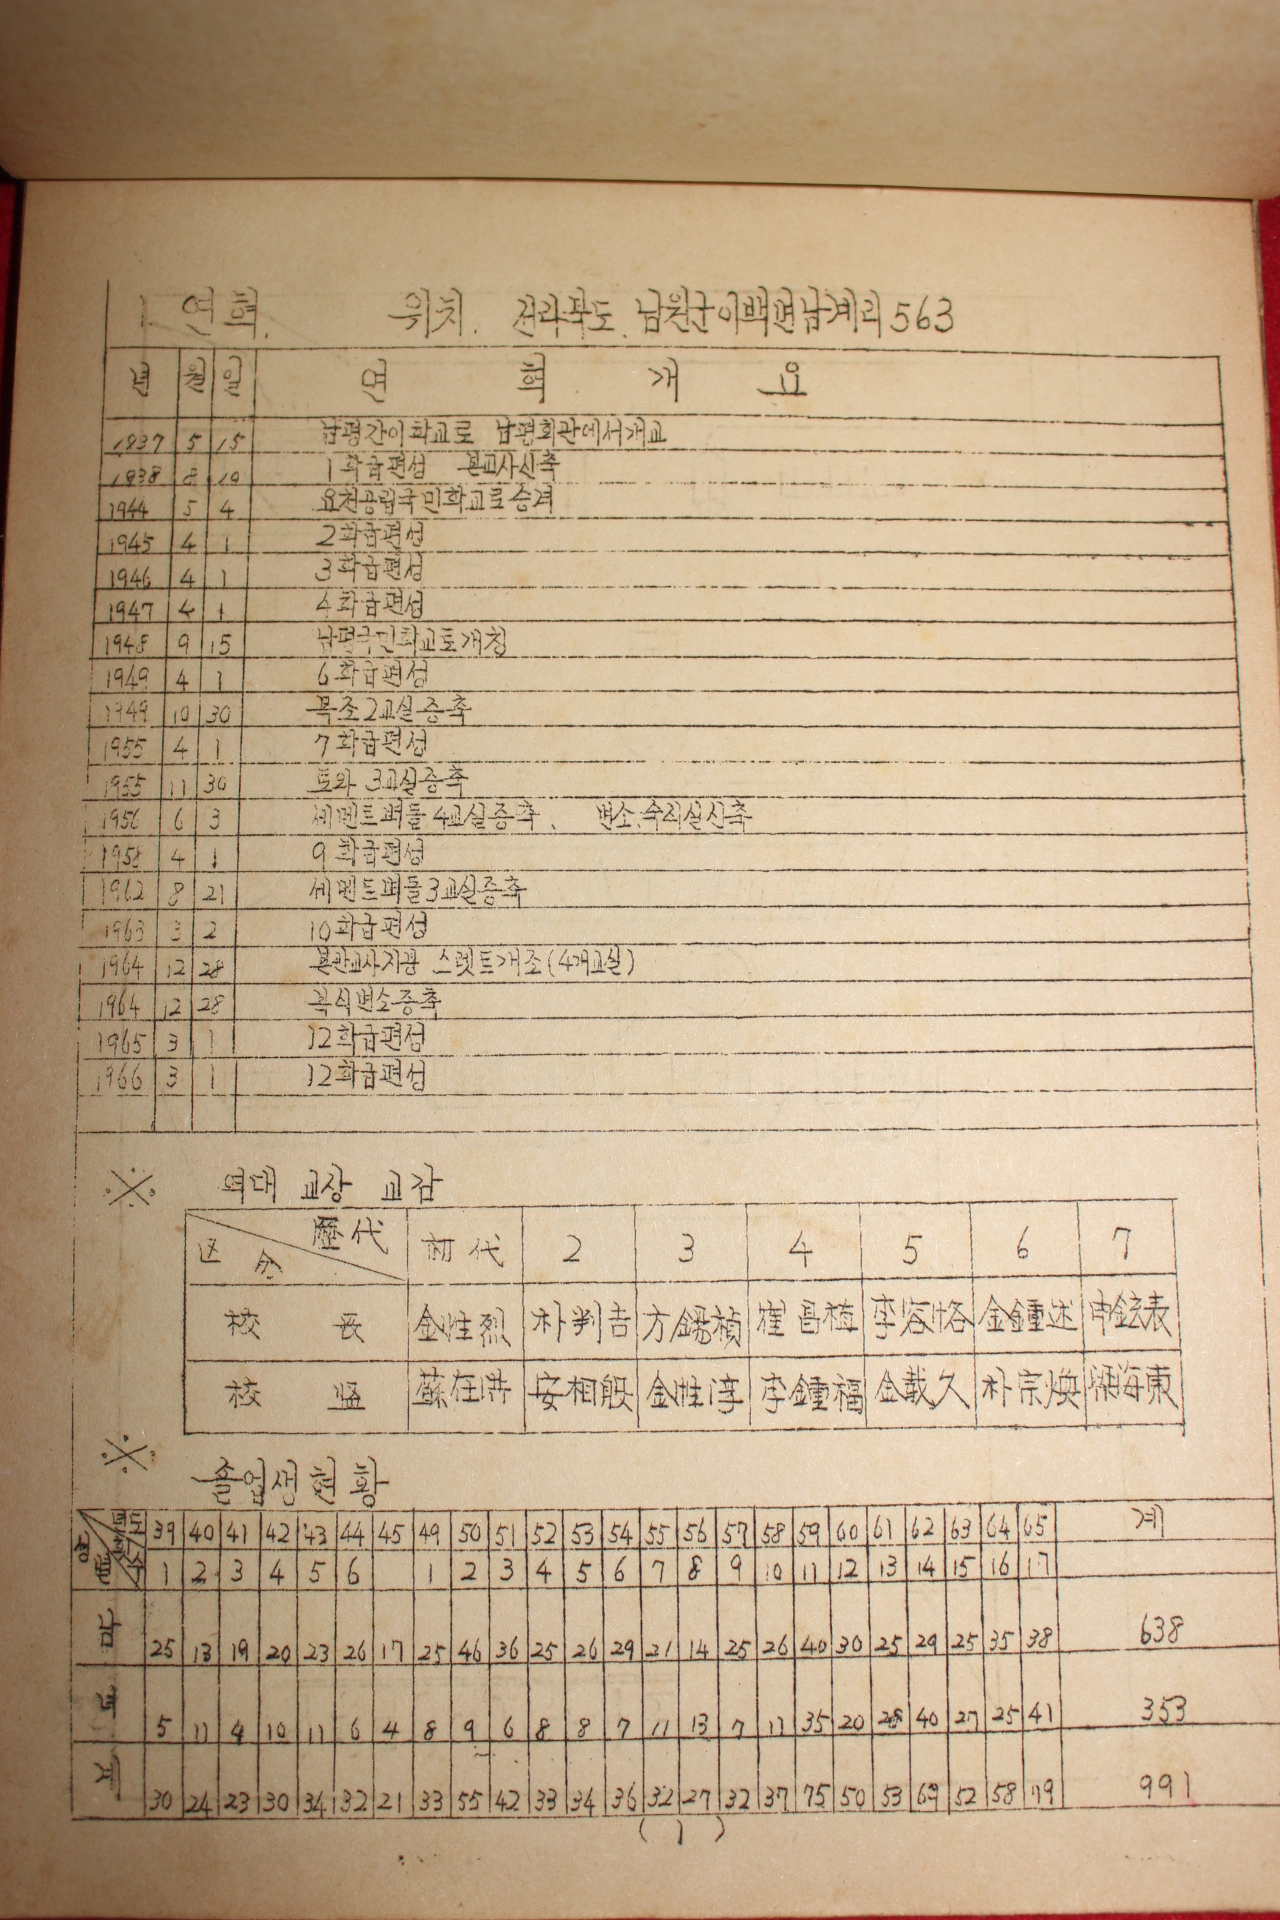 1. 연혁. 위치. 전라북도 남원군이백면남계리 563
년 월 일 연 혁 개 요
1937 5 15 남평간이학교로 남평회관에서개교
1938 8 10 1학급편성 본교사신축
1944 5 4 요천공립국민학교로승격
1945 4 1 2학급편성
1946 4 1 3학급편성
1947 4 1 4학급편성
1948 9 15 남평국민학교로개칭
1949 4 1 6학급편성
1949 10 30 목조2교실증축
1955 4 1 7학급편성
1955 11 30 토와 3교실증축
1956 6 3 세멘트벽돌 4교실증축、 변소.숙직실신축
1958 4 1 9학급편성
1962 8 21 세멘트벽돌3교실증축
1963 3 2 10학급편성
1964 12 28 본관교사지붕 스렛트개조(4개교실)
1964 12 28 변소증축
1965 3 1 12학급편성
1966 3 1 12학급편성
※ 역대 교장 교감
区分 歴代 初代 2 3 4 5 6 7
校長 金性烈 朴判吉 方錫楨 崔昌植 李容恪 金鍾述 申鉉表
校監 蘇在洪 安相殷 金性淳 李鍾福 金載久 朴宗煥 海東
※ 졸업생현황
년도 39 40 41 42 43 44 45 49 50 51 52 53 54 55 56 57 58 59 60 61 62 63 64 65 계
성별 회수 1 2 3 4 5 6 1 2 3 4 5 6 7 8 9 10 11 12 13 14 15 16 17
남 25 13 19 20 23 26 17 25 46 36 25 26 29 21 14 25 26 40 30 25 29 25 35 38 638
녀 5 11 4 10 11 6 4 8 9 6 8 8 7 11 13 7 11 35 20 28 40 27 25 41 353
계 30 24 23 30 34 32 21 33 55 42 33 34 36 32 27 32 37 75 50 53 69 52 58 79 991
( 1 )